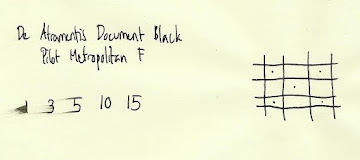 De Atramentis Document Black
Pilot Metropolitan F
1 3 5 10 15